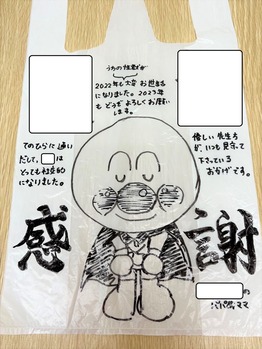 うちの怪獣が
2022年も大変お世話
になりました。2023年
もどうぞよろしくお願い
します。
てのひらに通い
だして、は
とっても社交的
になりました。
優しい先生方
が、いつも見守って
下さっている
おかげです。
感謝
の
ママ